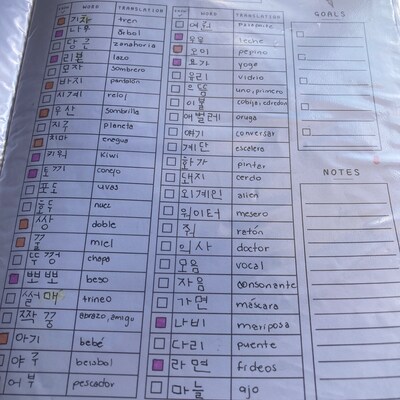 WORD TRANSLATION
기차 tren
나무 árbol
당근 zanahoria
리본 lazo
모자 sombrero
바지 pantalón
시계 reloj
우산 sombrilla
지구 planeta
치마 enagua
키위 Kiwi
토끼 conejo
포도 uvas
호두 nuez
쌍 doble
꿀 miel
뚜껑 chapa
뽀뽀 beso
썰매 trineo
짝꿍 abrazo, amigo
아기 bebé
야구 beisbol
어부 pescador
WORD TRANSLATION
우유 leche
오이 pepino
요가 yoga
유리 vidrio
으뜸 uno, primero
이불 cobija, edredon
애벌레 oruga
얘기 conversar
계단 escalera
화가 pintar
돼지 cerdo
외계인 alien
웨이터 mesero
쥐 ratón
의사 doctor
모음 vocal
자음 consonante
가면 máscara
나비 mariposa
다리 puente
라면 fideos
마늘 ajo
GOALS
NOTES